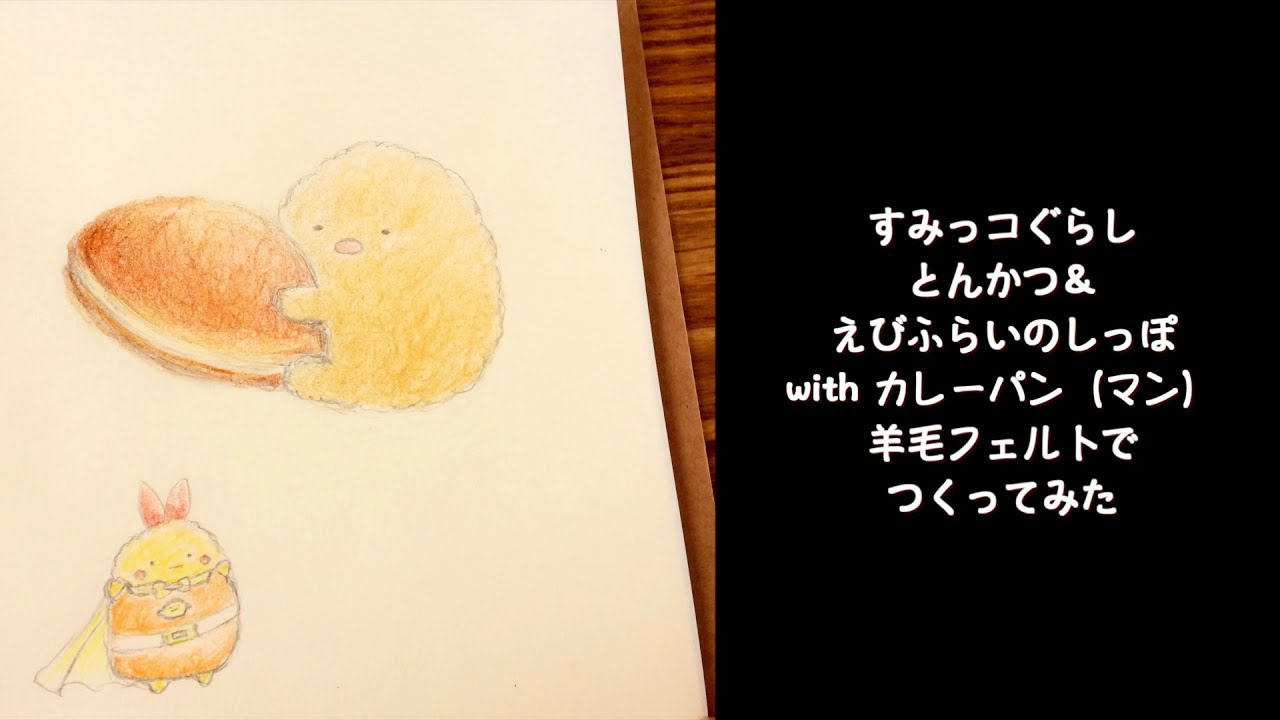 すみっコぐらし
とんかつ&
えびふらいのしっぽ
with カレーパン (マン)
羊毛フェルトで
つくってみた